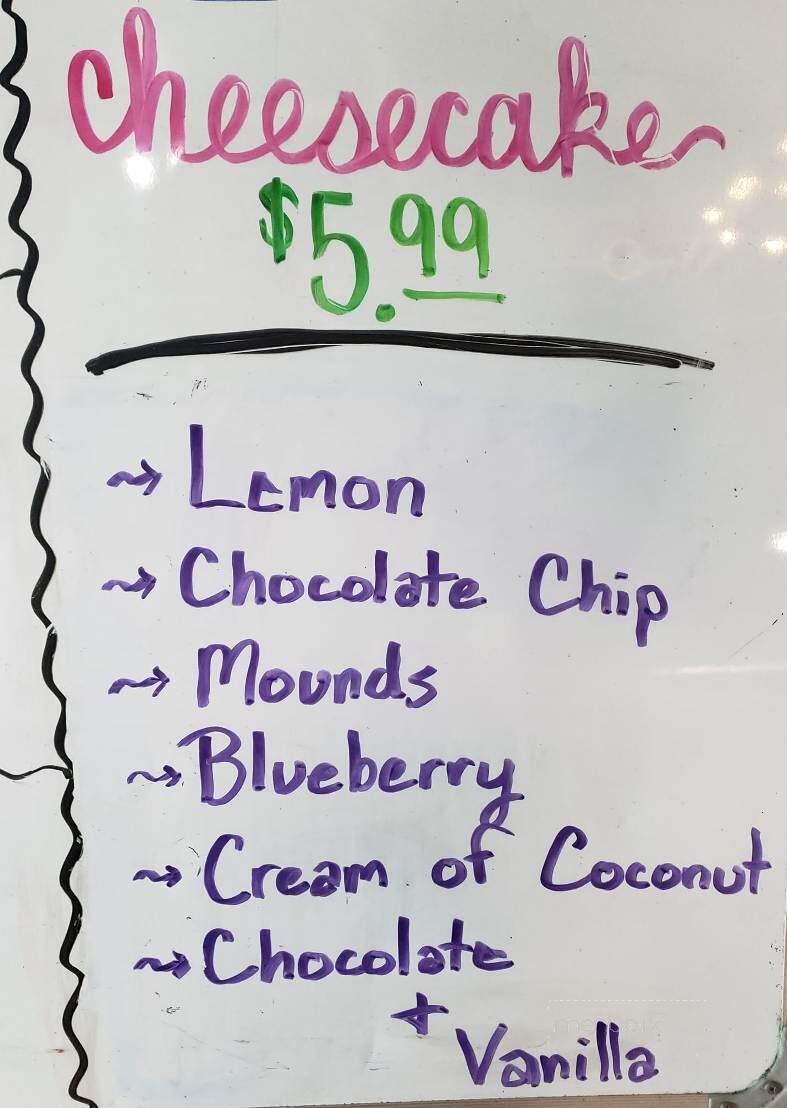 cheesecake
$5.99
⇝ Lemon
⇝ Chocolate Chip
⇝ Mounds
⇝ Blueberry
⇝ Cream of Coconut
⇝ Chocolate
+ Vanilla